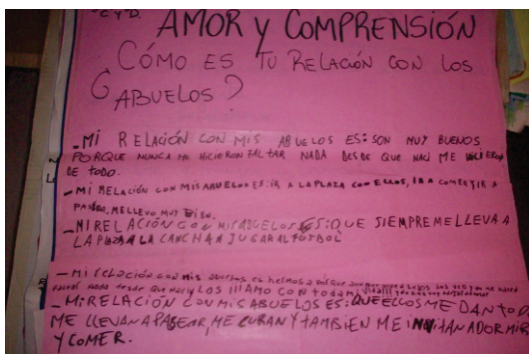 C Y D.
AMOR Y COMPRENSIÓN
¿CÓMO ES TU RELACIÓN CON LOS
ABUELOS?
- MI RELACIÓN CON MIS ABUELOS ES: SON MUY BUENOS
PORQUE NUNCA ME HICIERON FALTAR NADA DESDE QUE NACI ME HICIERON
DE TODO.
- MI RELACIÓN CON MIS ABUELOS ES: IR A LA PLAZA CON ELLOS, IR A COMER Y IR A
PASEAR, ME LLEVO MUY BIEN.
- MI RELACIÓN CON MIS ABUELOS ES: QUE SIEMPRE ME LLEVA A
LA PLAZA A LA CANCHA A JUGAR AL FUTBOL
- Mi relación con mis abuelos es hermosa
nada desde que nací y LOS AMO CON toda mi
- MI RELACIÓN CON MIS ABUELOS ES: QUE ELLOS ME DAN TODO
ME LLEVAN A PASEAR, ME CURAN Y TAMBIEN ME INVITAN A DORMIR
Y COMER.